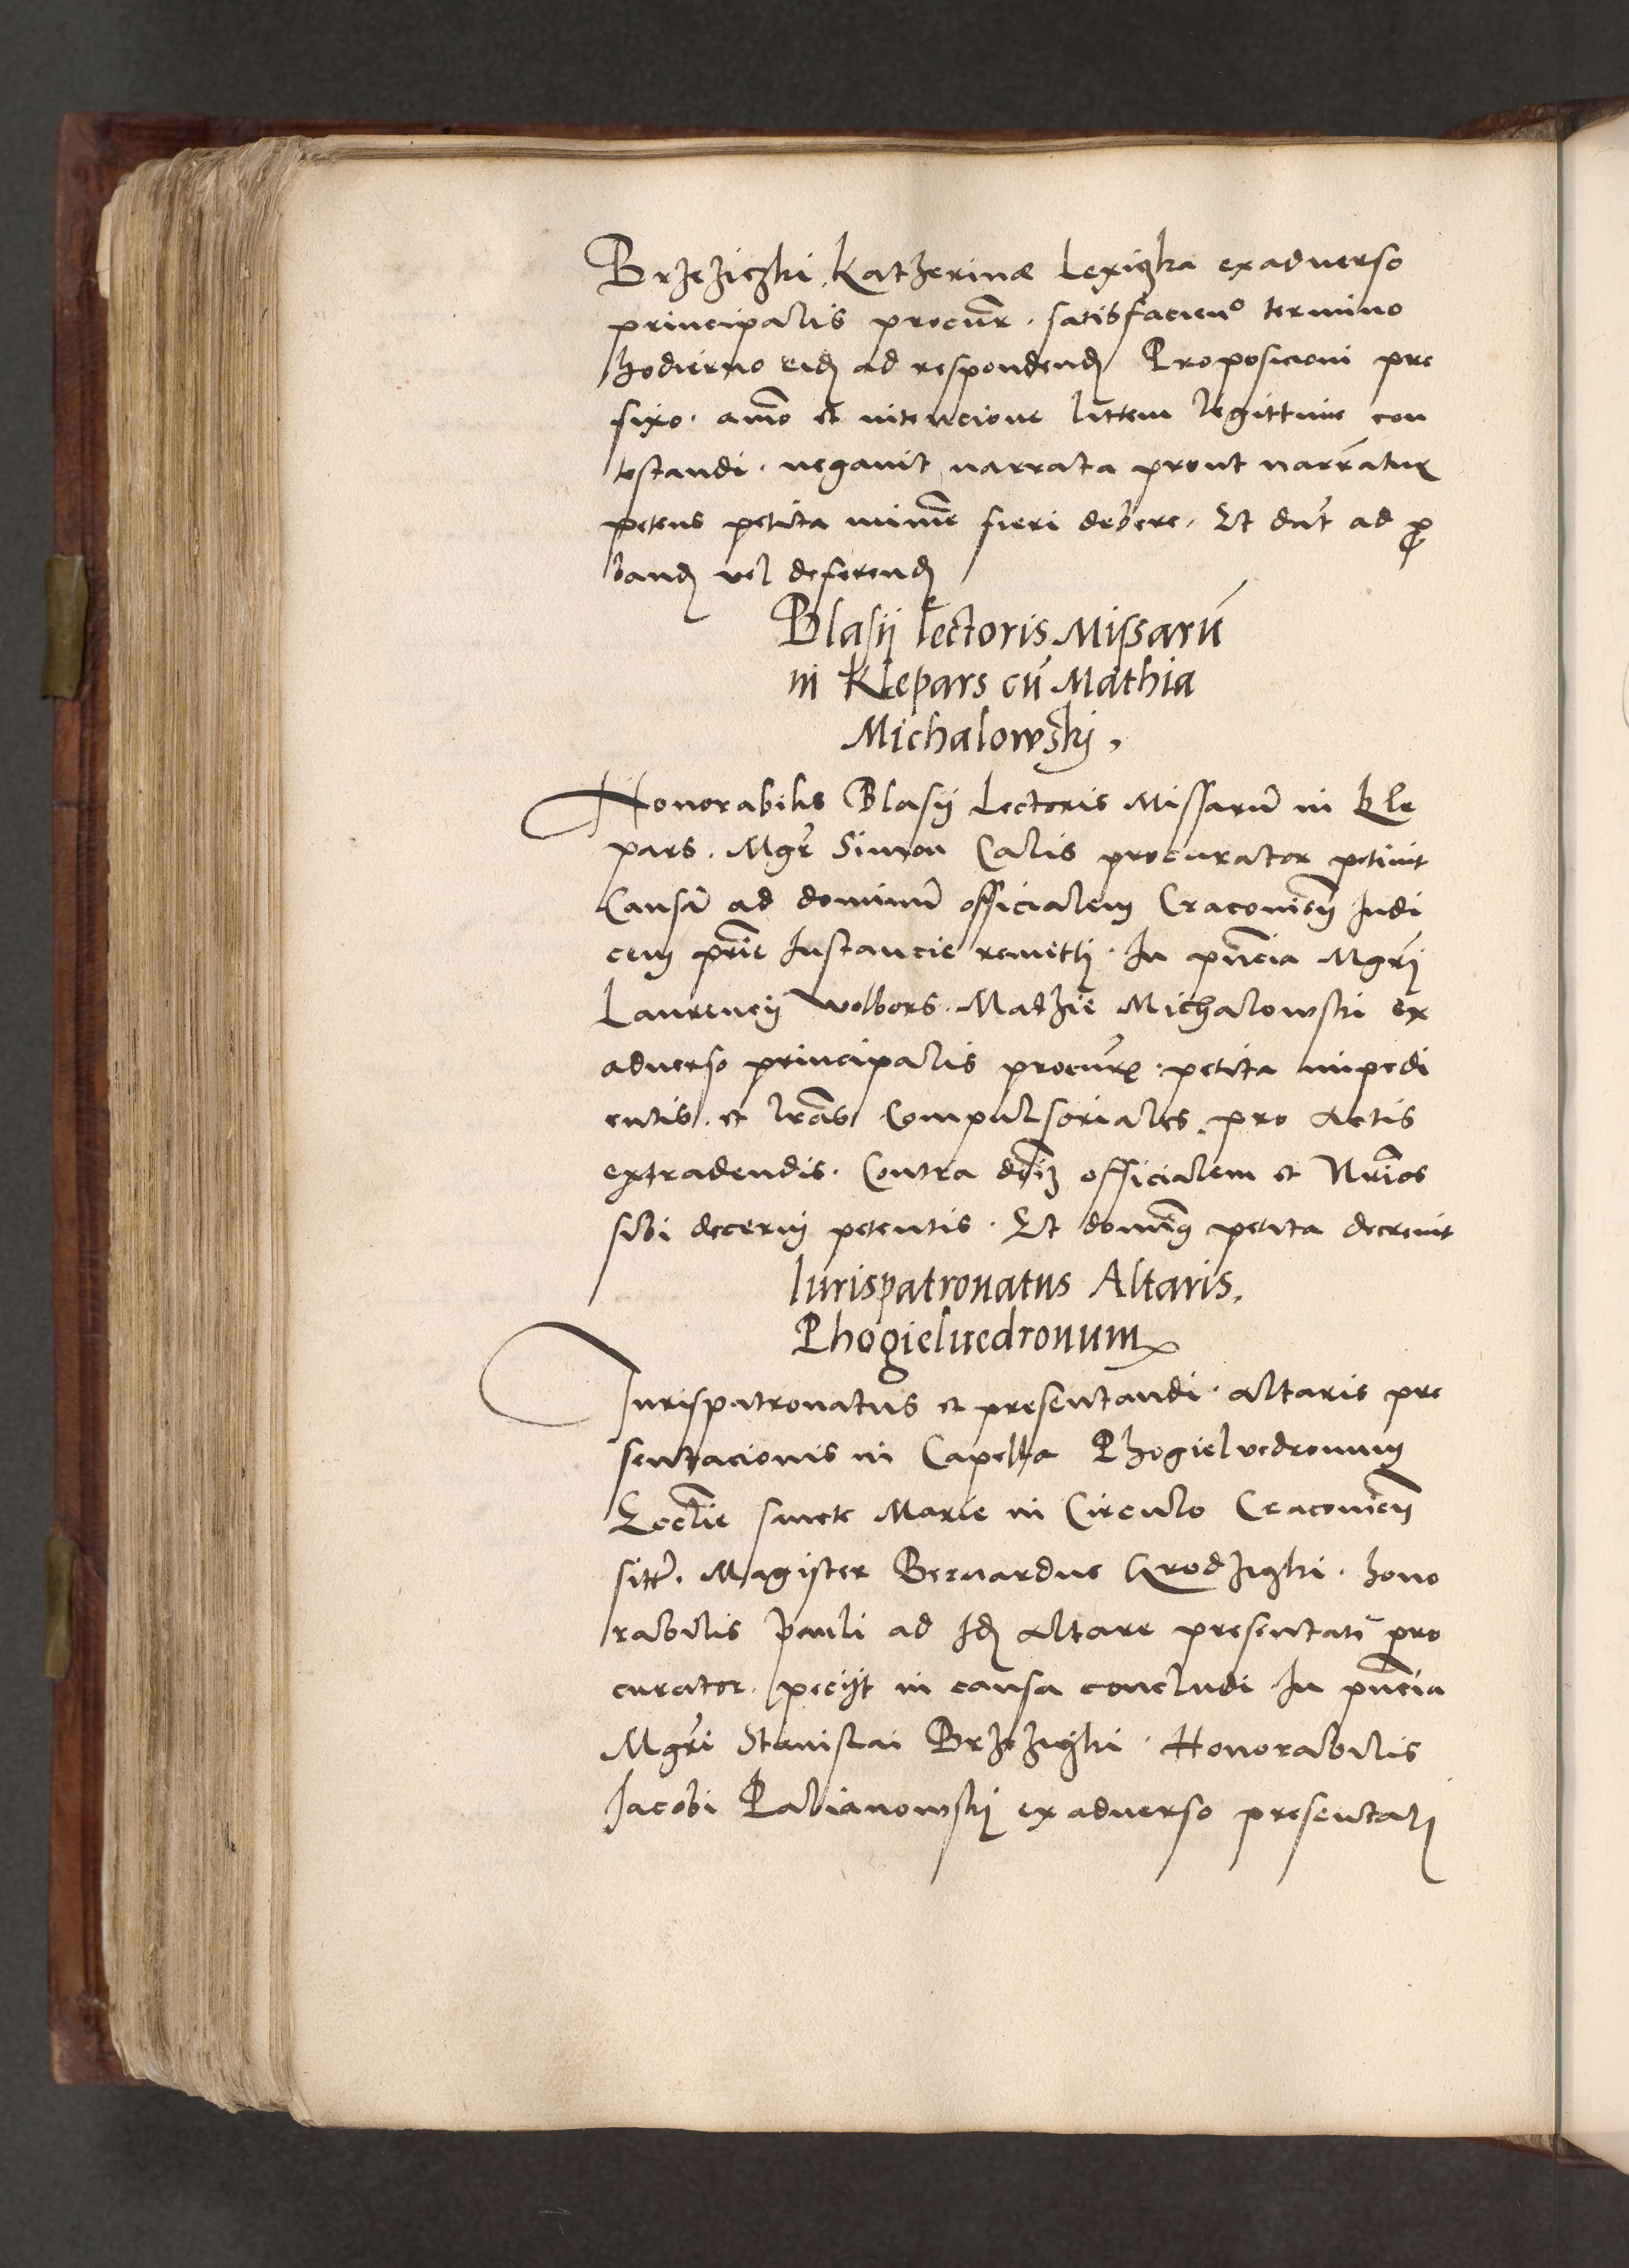 Brzeziczki Katherinæ Lexiczka ex aduerso
principalis procur̃. satisfacien͂do termino
hodierno eidȝ ad respondendȝ Proposicioni pre
fixo. aĩo et intencione littem legittime con
testandi. negauit narrata prout narrãtur
petens petita minime fieri debere. Et dat̃ ad ꝓ
bandȝ vel deferendȝ
Blasij lectoris Missarũ
in Klepars cũ Mathia
Michalowskj,
Honorabilis Blasij Lectoris Missarũ in Kle
pars. Mgr̃ Simon Calis procurator petiuit
Causã ad dominũ officialem Cracouieñ Judi
cem prĩe Instancie remittj. In pñcia Mgrĩ
Laurencij Wolbors. Mathie Michalowski ex
aduerso principalis procur̃. petita impedi
entis. et lrãs Compulsoriales pro actis
extradendis. Contra dñm officialem et Nrĩos
sibi decernj petentis. Et dominꝰ petita decreuit
Iurispatronatus Altaris.
Phogieluedronum
Iurispatronatus et presentandi. altaris pre
sentacionis in Capella Phogieluedronum
Eccĺie sancte Marie in Circulo Cracouieñ
sitȓ. Magister Bernardus Grodziczki. hono
rabilis Pauli ad idȝ altare presentati pro
curator. pecijt in causa concludi. In pñcia
Mgrĩ Stanislai Brzeziczki. Honorabilis
Jacobi Pabianowskj ex aduerso presentatj